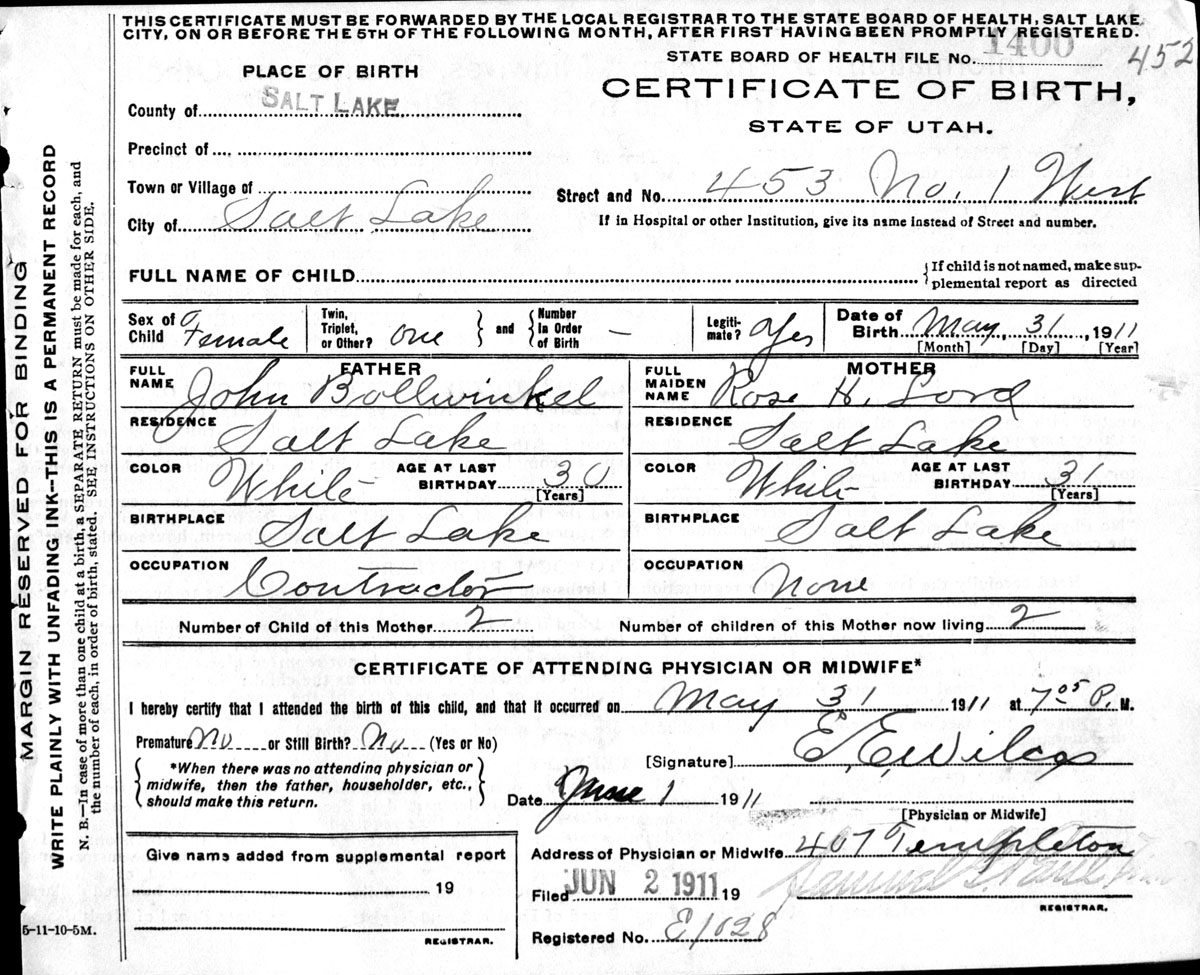 THIS CERTIFICATE MUST BE FORWARDED BY THE LOCAL REGISTRAR TO THE STATE BOARD OF HEALTH, SALT LAKE
CITY, ON OR BEFORE THE 5TH OF THE FOLLOWING MONTH, AFTER FIRST HAVING BEEN PROMPTLY REGISTERED.
STATE BOARD OF HEALTH FILE No. 1400 452
PLACE OF BIRTH
CERTIFICATE OF BIRTH,
STATE OF UTAH.
County of SALT LAKE
Precinct of
Town or Village of
Street and No. 453 No. 1 West
City of Salt Lake
If in Hospital or other Institution, give its name instead of Street and number.
FULL NAME OF CHILD
{If child is not named, make sup-
plemental report as directed
Sex of Child Female Twin, Triplet, or Other? one } and { Number In Order of Birth – Legiti-mate? Yes Date of Birth May 31 1911
[Month] [Day] [Year]
FATHER MOTHER
FULL NAME John Bollwinkel FULL MAIDEN NAME Rose H. Lord
RESIDENCE Salt Lake RESIDENCE Salt Lake
COLOR White AGE AT LAST BIRTHDAY 30 [Years] COLOR White AGE AT LAST BIRTHDAY 31 [Years]
BIRTHPLACE Salt Lake BIRTHPLACE Salt Lake
OCCUPATION Contractor OCCUPATION None
Number of Child of this Mother 2 Number of children of this Mother now living 2
CERTIFICATE OF ATTENDING PHYSICIAN OR MIDWIFE*
I hereby certify that I attended the birth of this child, and that it occurred on May 31 1911 at 7 05 P. M.
Premature No or Still Birth? No (Yes or No)
[Signature] E. E. Wilcox
{ *When there was no attending physician or
midwife, then the father, householder, etc.,
should make this return. }
Date June 1 1911
[Physician or Midwife]
Give name added from supplemental report
19
REGISTRAR.
Address of Physician or Midwife 407 Templeton
Filed JUN 2 1911 19
REGISTRAR.
Registered No. E1028
5-11-10-5M.
MARGIN RESERVED FOR BINDING
WRITE PLAINLY WITH UNFADING INK--THIS IS A PERMANENT RECORD
N. B.—In case of more than one child at a birth, a SEPARATE RETURN must be made for each, and
the number of each, in order of birth, stated. SEE INSTRUCTIONS ON OTHER SIDE.